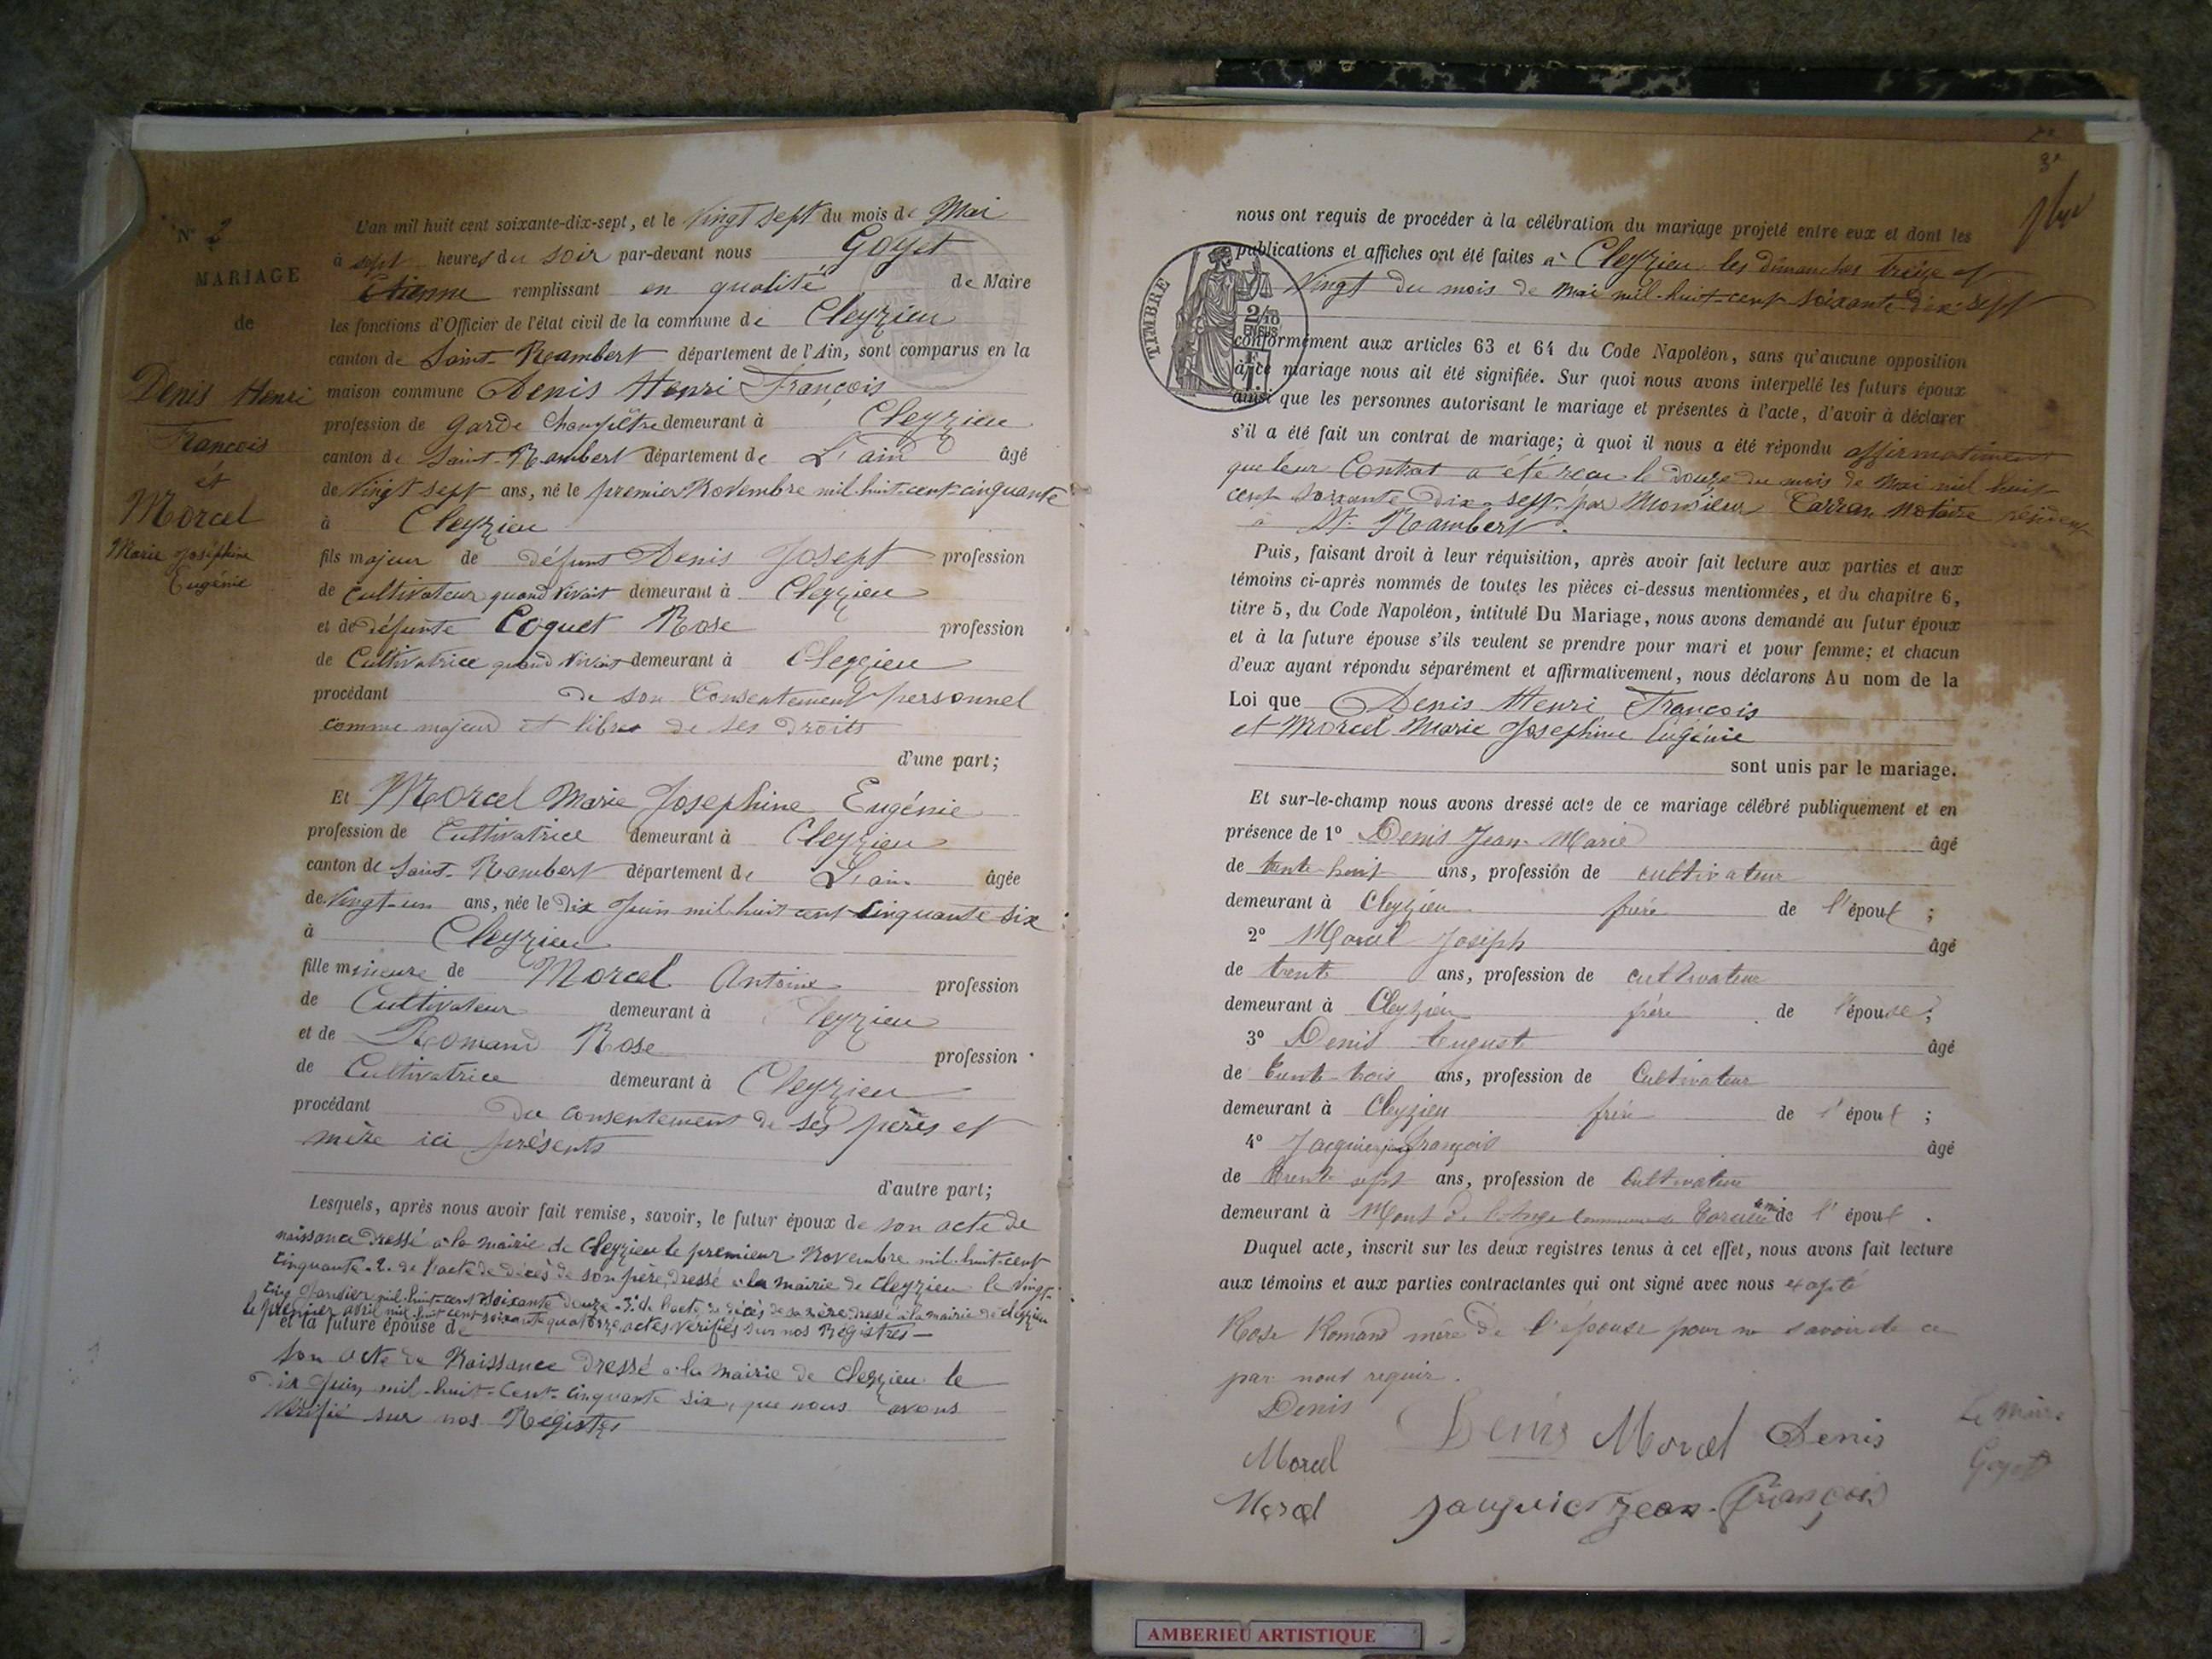 N° 2
MARIAGE
de
Denis Henri
François
et
Morcel
Marie Joséphine
Eugénie
L'an mil huit cent soixante-dix-sept, et le Vingt sept du mois de Mai
à sept heures du soir par-devant nous Goyet
Etienne remplissant en qualité de Maire
les fonctions d'Officier de l'état civil de la commune de Cleyzieu
canton de Saint-Rambert département de l'Ain, sont comparus en la
maison commune Denis Henri François
profession de garde Champêtre demeurant à Cleyzieu
canton de Saint-Rambert département de L'ain âgé
de Vingt sept ans, né le premier Novembre mil-huit-cent-cinquante
à Cleyzieu
fils majeur de défunt Denis Josept profession
de Cultivateur quand vivait demeurant à Cleyzieu
et de défunte Coquet Rose profession
de Cultivatrice quand vivait demeurant à Cleyzieu
procédant de son Consentement personnel
comme majeur et libre de ses droits
d'une part;
Et Morcel Marie Josephine Eugénie
profession de Cultivatrice demeurant à Cleyzieu
canton de Saint-Rambert département de L'ain âgée
de Vingt-un ans, née le dix Juin mil-huit cent Cinquante six
à Cleyzieu
fille mineure de Morcel Antoine profession
de Cultivateur demeurant à Cleyzieu
et de Romand Rose profession
de Cultivatrice demeurant à Cleyzieu
procédant du consentement de ses pères et
mère ici présents
d'autre part;
Lesquels, après nous avoir fait remise, savoir, le futur époux de son acte de
naissance dressé à la mairie de Cleyzieu le premier Novembre mil-huit-cent
cinquante. 2. de l'acte de décès de son père, dressé à la mairie de Cleyzieu le Vingt-
cinq Janvier mil-huit-cent soixante douze. 3° de l'acte de décès de sa mère dressé à la mairie de Cleyzieu
le premier avril mil-huit-cent-soixante quatorze, actes vérifiés sur nos Registres
et la future épouse de
son acte de Naissance dressé à la mairie de Cleyzieu le
dix Juin mil-huit-Cent-Cinquante six, que nous avons
Vérifié sur nos Régistres
nous ont requis de procéder à la célébration du mariage projeté entre eux et dont les
publications et affiches ont été faites à Cleyzieu les dimanches treize et
Vingt du mois de mai mil-huit-cent soixante dix sept
TIMBRE
2/10
EN SUS
conformément aux articles 63 et 64 du Code Napoléon, sans qu'aucune opposition
à ce mariage nous ait été signifiée. Sur quoi nous avons interpellé les futurs époux
ainsi que les personnes autorisant le mariage et présentes à l'acte, d'avoir à déclarer
s'il a été fait un contrat de mariage; à quoi il nous a été répondu affirmativement
que leur Contrat a été reçu le douze du mois de Mai mil huit
cent soixante dix-sept par Monsieur Carran notaire résident
à St. Rambert.
Puis, faisant droit à leur réquisition, après avoir fait lecture aux parties et aux
témoins ci-après nommés de toutes les pièces ci-dessus mentionnées, et du chapitre 6,
titre 5, du Code Napoléon, intitulé Du Mariage, nous avons demandé au futur époux
et à la future épouse s'ils veulent se prendre pour mari et pour femme; et chacun
d'eux ayant répondu séparément et affirmativement, nous déclarons Au nom de la
Loi que Denis Henri François
et Morcel Marie Josephine Eugénie
sont unis par le mariage.
Et sur-le-champ nous avons dressé acte de ce mariage célébré publiquement et en
présence de 1° Denis Jean-Marie âgé
de trente-huit ans, profession de cultivateur
demeurant à Cleyzieu frère de l'époux ;
2° Morcel Joseph âgé
de trente ans, profession de cultivateur
demeurant à Cleyzieu frère de l'épouse ;
3° Denis August âgé
de trente-trois ans, profession de Cultivateur
demeurant à Cleyzieu frère de l'époux ;
4° Jacquier jean françois âgé
de trente sept ans, profession de Cultivateur
demeurant à Mont de commune de Torcieu ami de l'époux .
Duquel acte, inscrit sur les deux registres tenus à cet effet, nous avons fait lecture
aux témoins et aux parties contractantes qui ont signé avec nous excepté
Rose Romand mère de l'épouse pour ne savoir de ce
par nous requir.
Denis Denis Morcel Denis Le Maire
Morcel Goyet
Morcel Jacquier Jean-François
AMBERIEU ARTISTIQUE